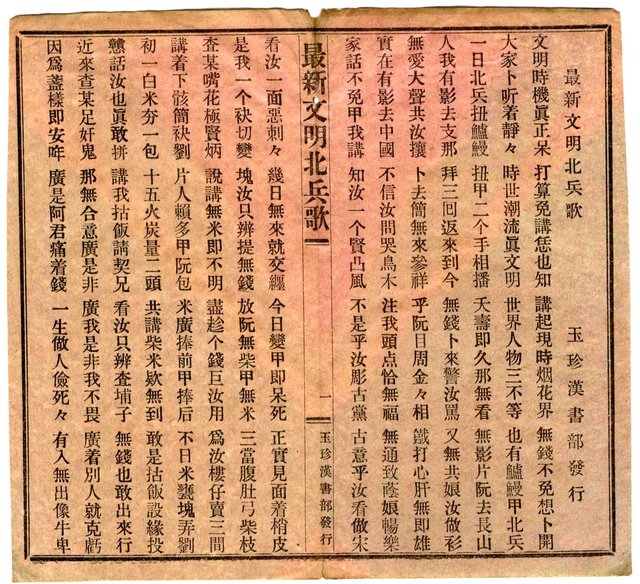 最新文明北兵歌 玉珍漢書部發行
文明時機眞正呆 打算免講恁也知 講起現時烟花界 無錢不免想卜開
大家卜听着靜々 時世潮流眞文明 世界人物三不等 也有鱸鰻甲北兵
一日北兵扭鱸鰻 扭甲二个手相播 夭壽即久那無看 無影片阮去長山
人我有影去支那 拜三回返來到今 無錢卜來警汝罵 又無共娘汝做衫
無愛大聲共汝攘 卜去簡無來參祥 乎阮目周金々相 鐵打心肝無即雄
實在有影去中國 不信汝問哭鳥木 注我頭点恰無福 無通致蔭娘暢樂
家話不免甲我講 知汝一个賢凸風 不是乎汝彫古黨 古意乎汝看做宋
最新文明北兵歌 一 玉珍漢書部發行
看汝一面惡刺々 幾日無來就交纏 今日變甲即呆死 正實見面着梢皮
是我一个袂切變 塊汝只辨提無錢 放阮無柴甲無米 三當腹肚弓柴枝
查某嘴花極賢炳 說講無米即不明 盡趁个錢巨汝用 爲汝樓仔賣三間
講着下骸簡袂劉 片人賴多甲阮包 米廣捧前甲捧后 不日米甕塊弄劉
初一白米夯一包 十五火炭量二頭 共講柴米欵無到 敢是拈飯設緣投
戇話汝也眞敢拼 講我拈飯請契兄 看汝只辨查埔子 無錢也敢出來行
近來查某足奸鬼 那無合意廣是非 廣我是非我不畏 廣着別人就克虧
因爲盞樣即安咋 廣是阿君痛着錢 一生做人儉死々 有入無出像牛卑